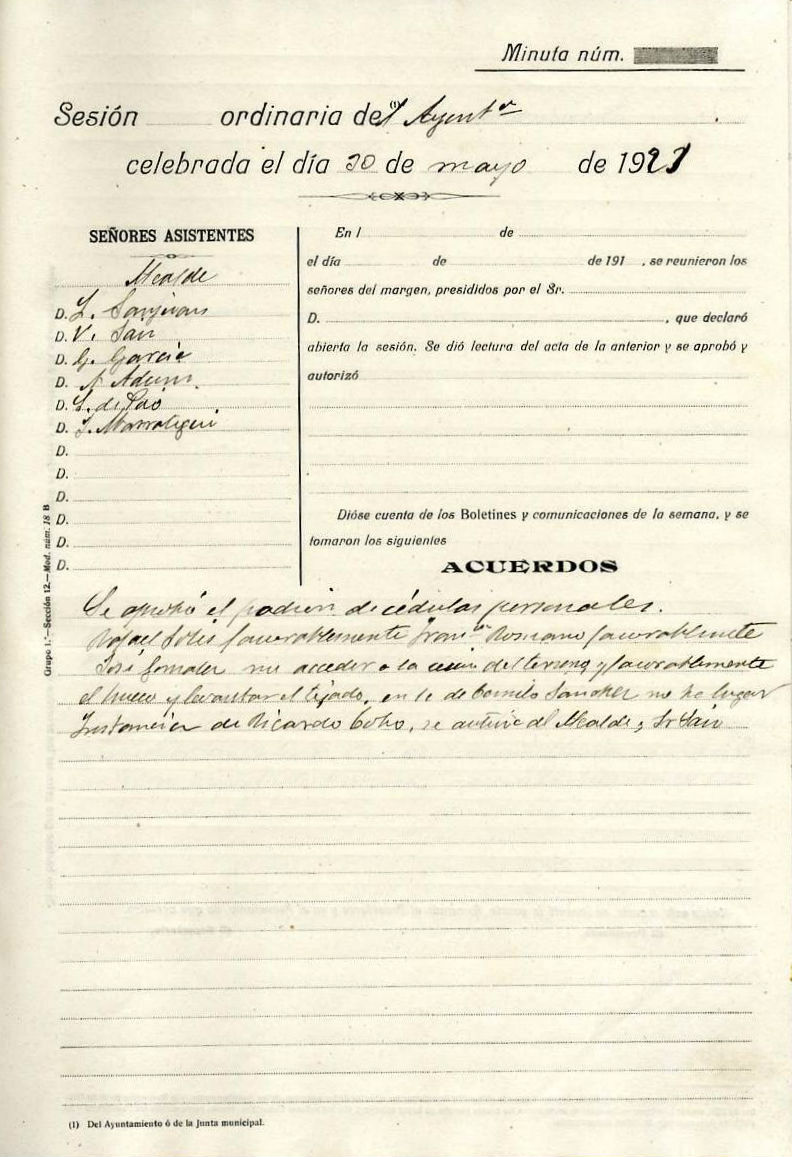 Minuta núm.
Sesión ordinaria del (1) Ayuntº
celebrada el día 30 de mayo de 1921
SEÑORES ASISTENTES
Alcalde
D. L. Sanjuan
D. V. Sain
D. G. García
D. A.
D. S. de Pao
D. J.
D.
D.
D.
D.
D.
D.
En l de
el día de de 191 , se reunieron los
señores del margen, presididos por el Sr.
D. , que declaró
abierta la sesión. Se dió lectura del acta de la anterior y se aprobó y
autorizó
Dióse cuenta de los Boletines y comunicaciones de la semana, y se
tomaron los siguientes
ACUERDOS
Se aprobó el padrón de cédulas personales.
Rafael Solis favorablemente Franco Romano favorablemente
José Gonzalez no acceder a la del terreno y favorablemente
el hueco y levantar el tejado, en le de Camilo Sanchez no ha lugar
Instancia de Ricardo Cobo, se autorice al Alcalde y Sr Sain
Grupo 1.º—Sección 12.—Mod. núm. 18 B
(1) Del Ayuntamiento ó de la Junta municipal.